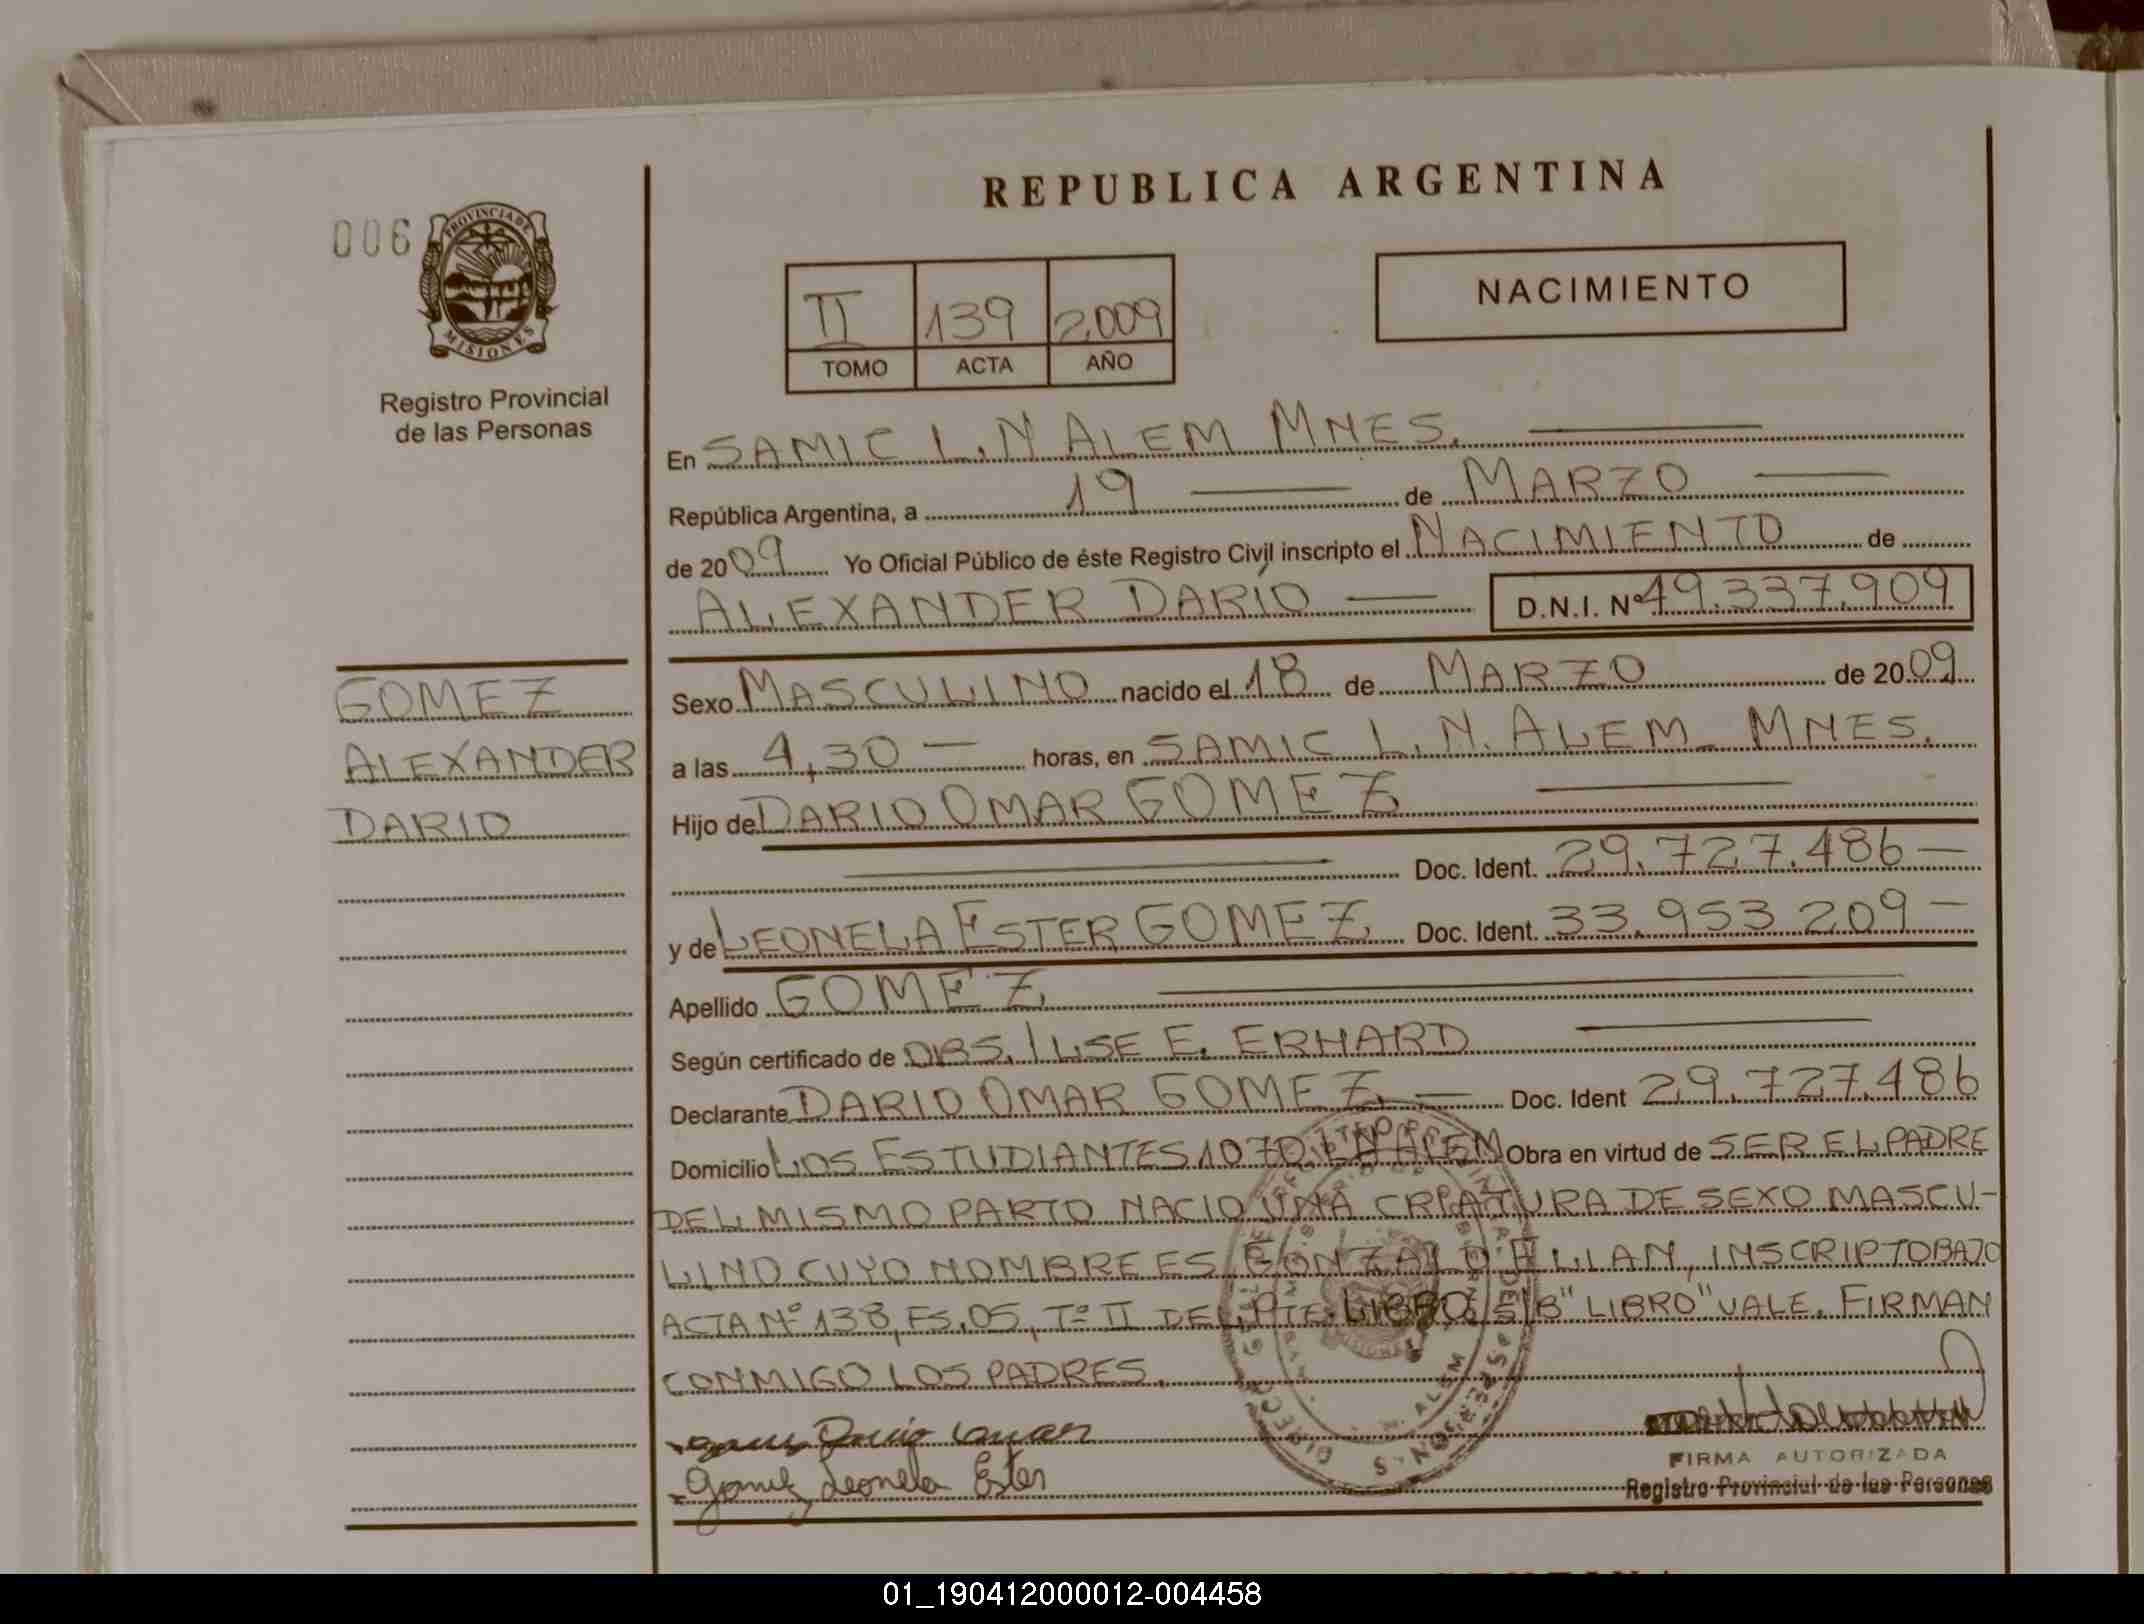 REPUBLICA ARGENTINA
006
PROVINCIA DE
MISIONES
Registro Provincial
de las Personas
II 139 2,009
TOMO ACTA AÑO
NACIMIENTO
En SAMIC L.N ALEM MNES.
República Argentina, a 19 de MARZO
de 2009 Yo Oficial Público de éste Registro Civil inscripto el NACIMIENTO de
ALEXANDER DARÍO D.N.I. Nº 49.337.909
GOMEZ
ALEXANDER
DARIO
Sexo MASCULINO nacido el 18 de MARZO de 2009
a las 4,30 — horas, en SAMIC L.N. ALEM - MNES.
Hijo de DARIO OMAR GOMEZ
Doc. Ident. 29.727.486 —
y de LEONELA ESTER GOMEZ Doc. Ident. 33.953 209 —
Apellido GOMEZ
Según certificado de OBS. ILSE E. ERHARD
Declarante DARIO OMAR GOMEZ — Doc. Ident 29.727.486
Domicilio LOS ESTUDIANTES 1070, LN ALEM Obra en virtud de SER EL PADRE
DEL MISMO PARTO NACIO UNA CRIATURA DE SEXO MASCU-
LINO CUYO NOMBRE ES GONZALO ELIAN, INSCRIPTO BAJO
ACTA Nº 138, FS. 05, Tº II DEL PTE. LIBRO S/B "LIBRO" VALE. FIRMAN
CONMIGO LOS PADRES.
Omar
Gomez Leonela Ester
FIRMA AUTORIZADA
Registro Provincial de las Personas
01_190412000012-004458